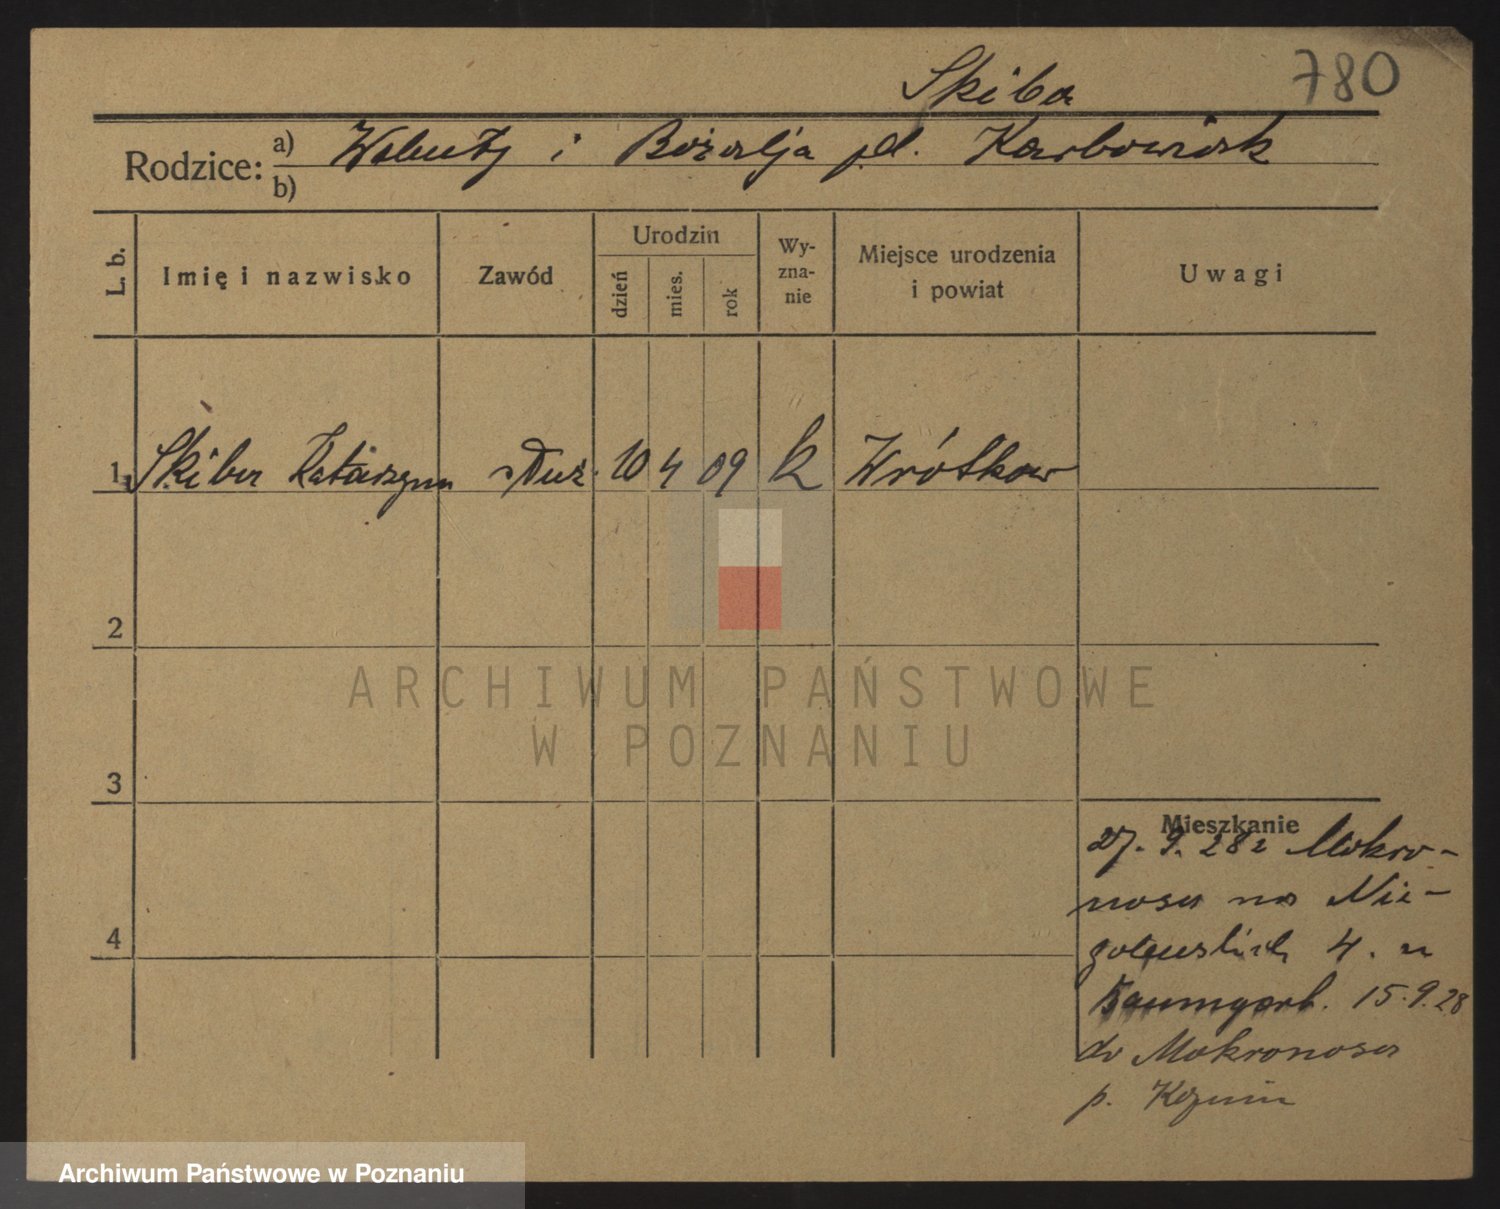 Skiba 780
Rodzice: a) Walenty i Rozalja p.d. Karbowiak
b)
L. b. Imię i nazwisko Zawód Urodzin dzień mies. rok Wy-zna-nie Miejsce urodzenia i powiat Uwagi
1. Skiba Katarzyna służ. 10 4 09 k Wrótkow
2
3
Mieszkanie
27. 9. 28 z Mokro-
nosa na Nie-
golewskich 4. u
Baumgart. 15.9.28
do Mokronosa
p. Koźmin
4
ARCHIWUM PAŃSTWOWE
W POZNANIU
Archiwum Państwowe w Poznaniu